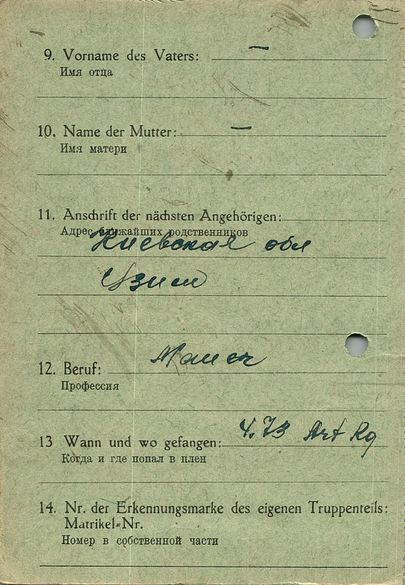 9. Vorname des Vaters: —
Имя отца
10. Name der Mutter: —
Имя матери
11. Anschrift der nächsten Angehörigen:
Адрес ближайших родственников
Киевская обл
12. Beruf:
Профессия
13 Wann und wo gefangen: 4.73 Art Rg
Когда и где попал в плен
14. Nr. der Erkennungsmarke des eigenen Truppenteils:
Matrikel-Nr.
Номер в собственной части